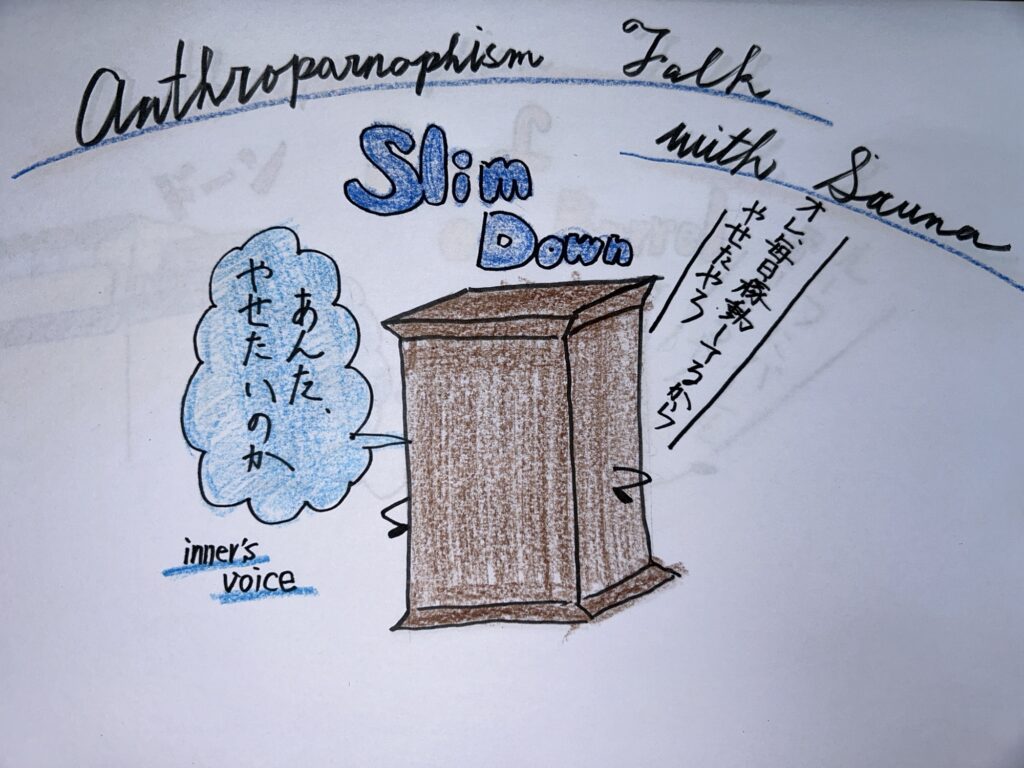 Anthroparnophism Talk
with Sauna
Slim
Down
オレ、毎日稼動してるから
やせたやろ
あんた、
やせたいのか
inner's
voice